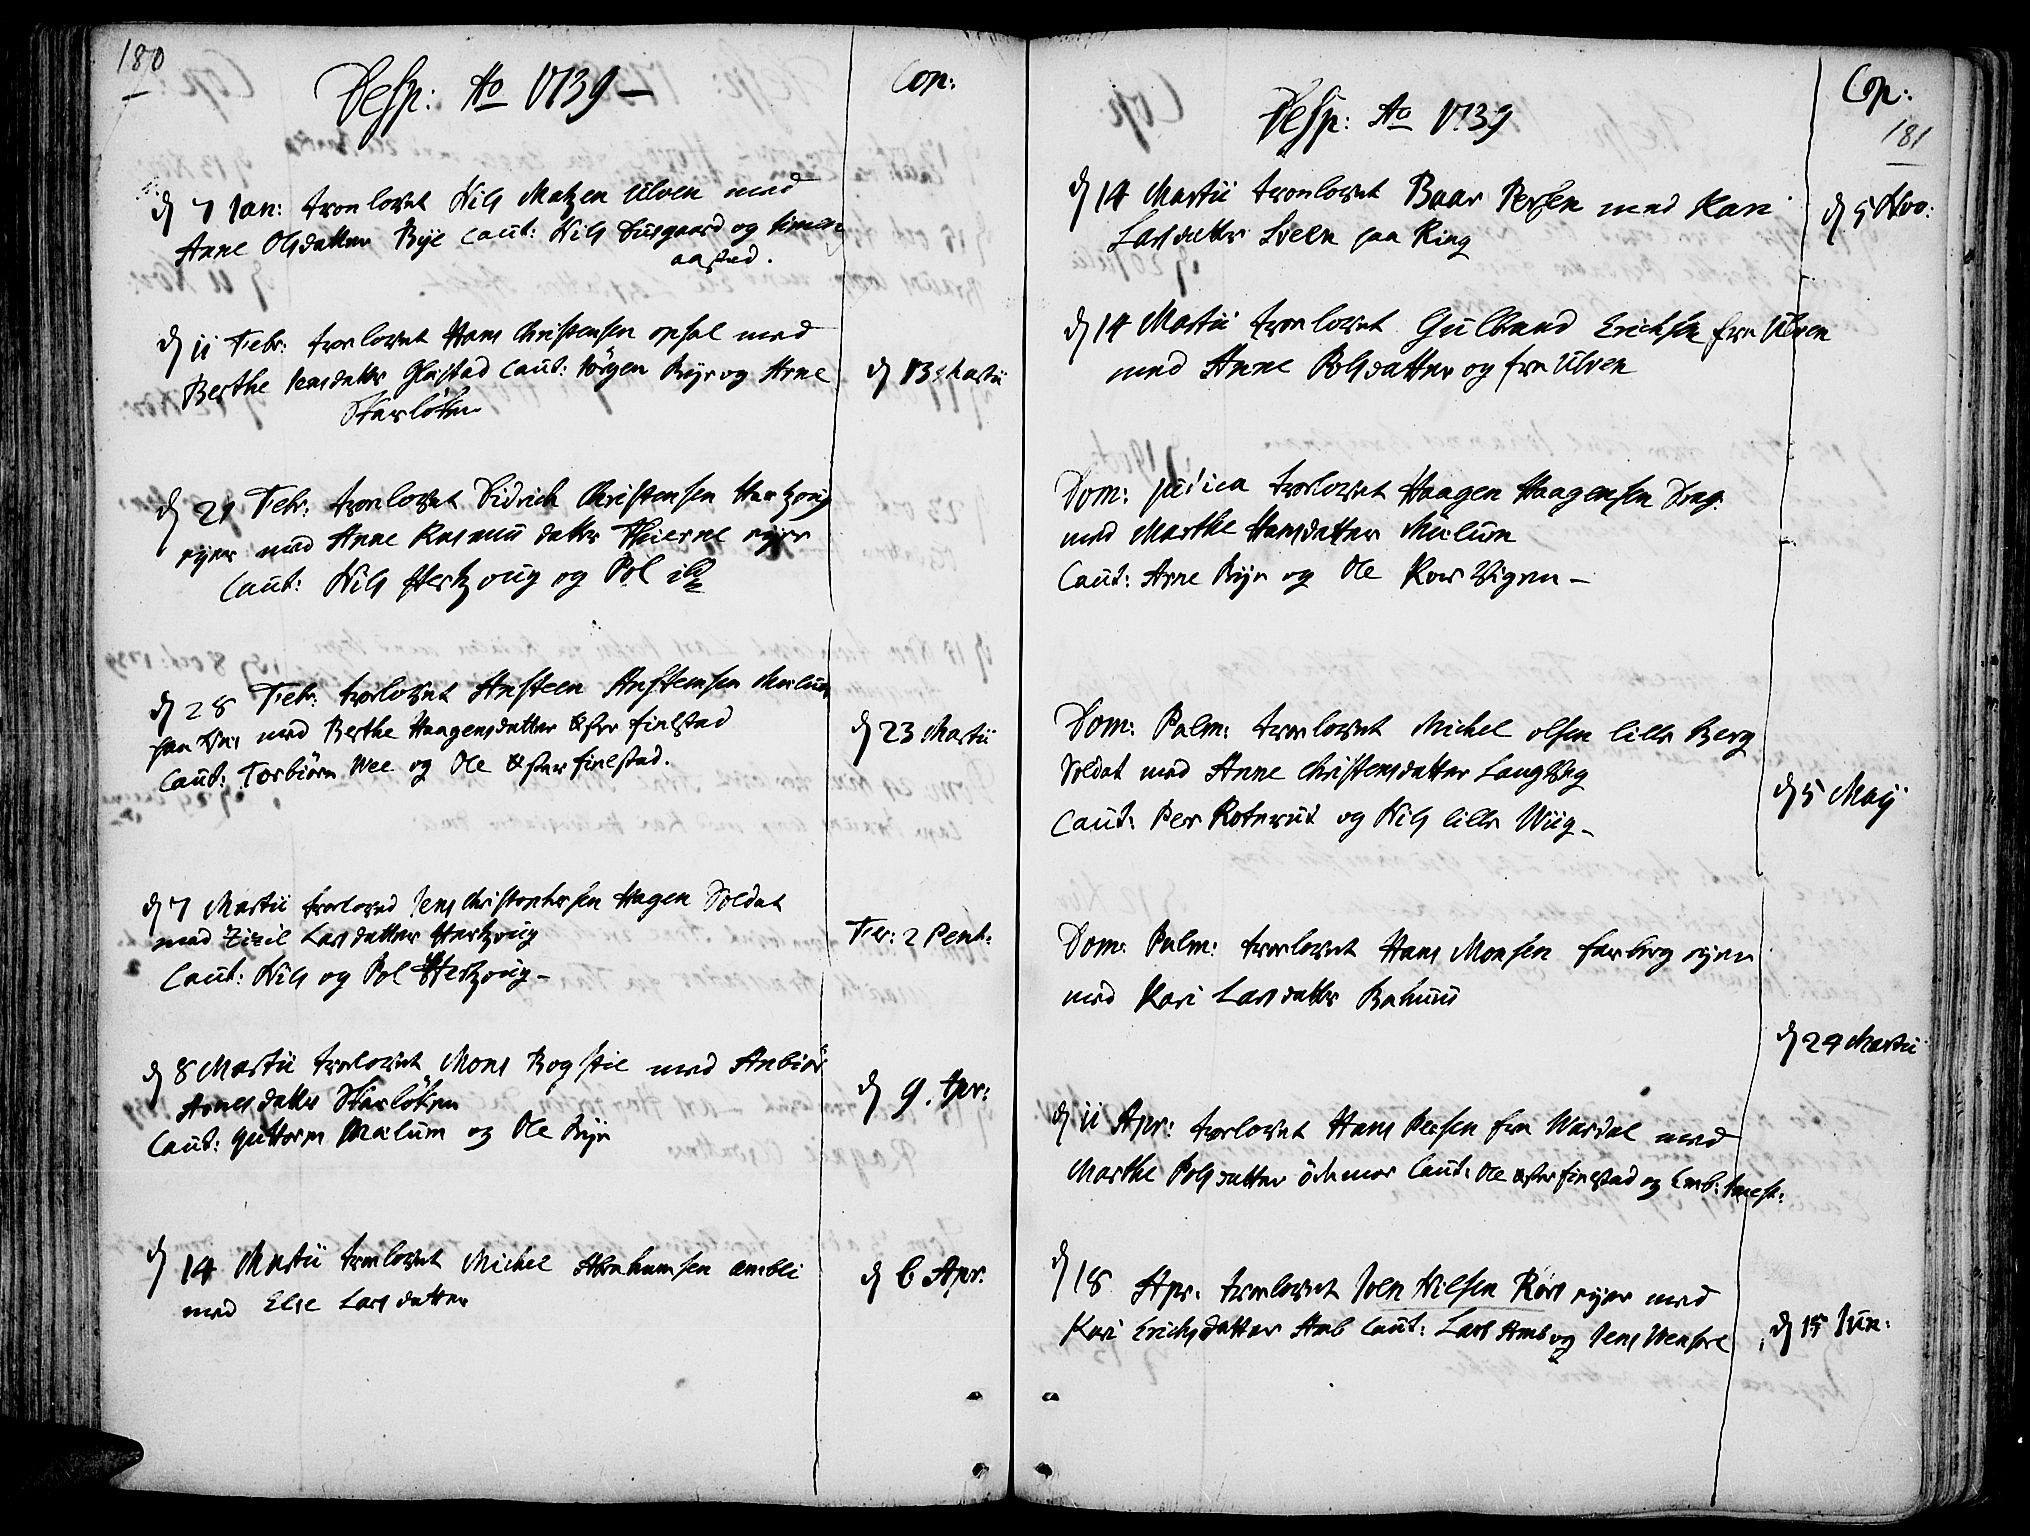 180
Desp: Ao 1739 —
Cop:
d 7 Jan: trolovet Nils Matzen Ulven med
Anne Olsdatter Bye Caut: Nils Duegaard og Simen
aastad.
d 11 Febr: trolovet Hans Christensen opsal med
Berthe Jensdatter Glæstad Caut: Jörgen Bye og Arne
Skarlöken
d 13 Martii
d 21 Febr: trolovet Didrich Christensen Hertzoug
eyer med Anne Rasmus datter Thierne eyer
Caut: Nils Hertzoug og Pol ib
d 28 Febr: trolovet Ansteen Anstensen Mælum
paa med Berthe Haagensdatter Öfre finstad
Caut: Torbiörn Wee og Ole Öfter finstad.
d 23 Martii
d 7 Martii troloved Jens Christophersen Hagen Soldat
med Zizil Lars datter Hertzoug
Caut: Nils og Pol Hertzoug —
Fer: 2 Pent:
d 8 Martii trolovet Mons Bogstie med Anbiör
Arnes datter Skarlöken
Caut: Guttorm Mælum og Ole Bye
d 9. Apr:
d 14 Martii trolovet Michel Abrahamsen æmbli
med Else Lars datter
d 6 Apr.
Desp: Ao 1739
Cop:
181
d 14 Martii trolovet Baar Persen med Kari
Larsdatter Sveen paa Ring
d 5 Nov:
d 14 Martii trolovet Gulbrand Erichsen fra Ulven
med Anne Polsdatter og fra Ulven
Dom: Judica trolovet Haagen Haagensen Drag:
med Marthe Hansdatter Mælum
Caut: Arne Bye og Ole Korsvigen —
Dom: Palm: trolovet Michel olsen lille Berg
Soldat med Anne Christensdatter Laug
Caut: Per Roterud og Nils lille Wiig —
d 5 Maij
Dom: Palm: trolovet Hans Monsen farberg eyer
med Kari Lars datter Bahuus
d 24 Martii
d 11 Apr: trolovet Hans Persen fra Wardal med
Marthe Polsdatter ödemor Caut: Ole Öfter finstad og Emb:
d 18 Apr: trolovet Joen Nilsen Rörs eyer med
Kari Erichsdatter Amb Caut: Lars Amb og Jens Wensve
d 15 Jun: